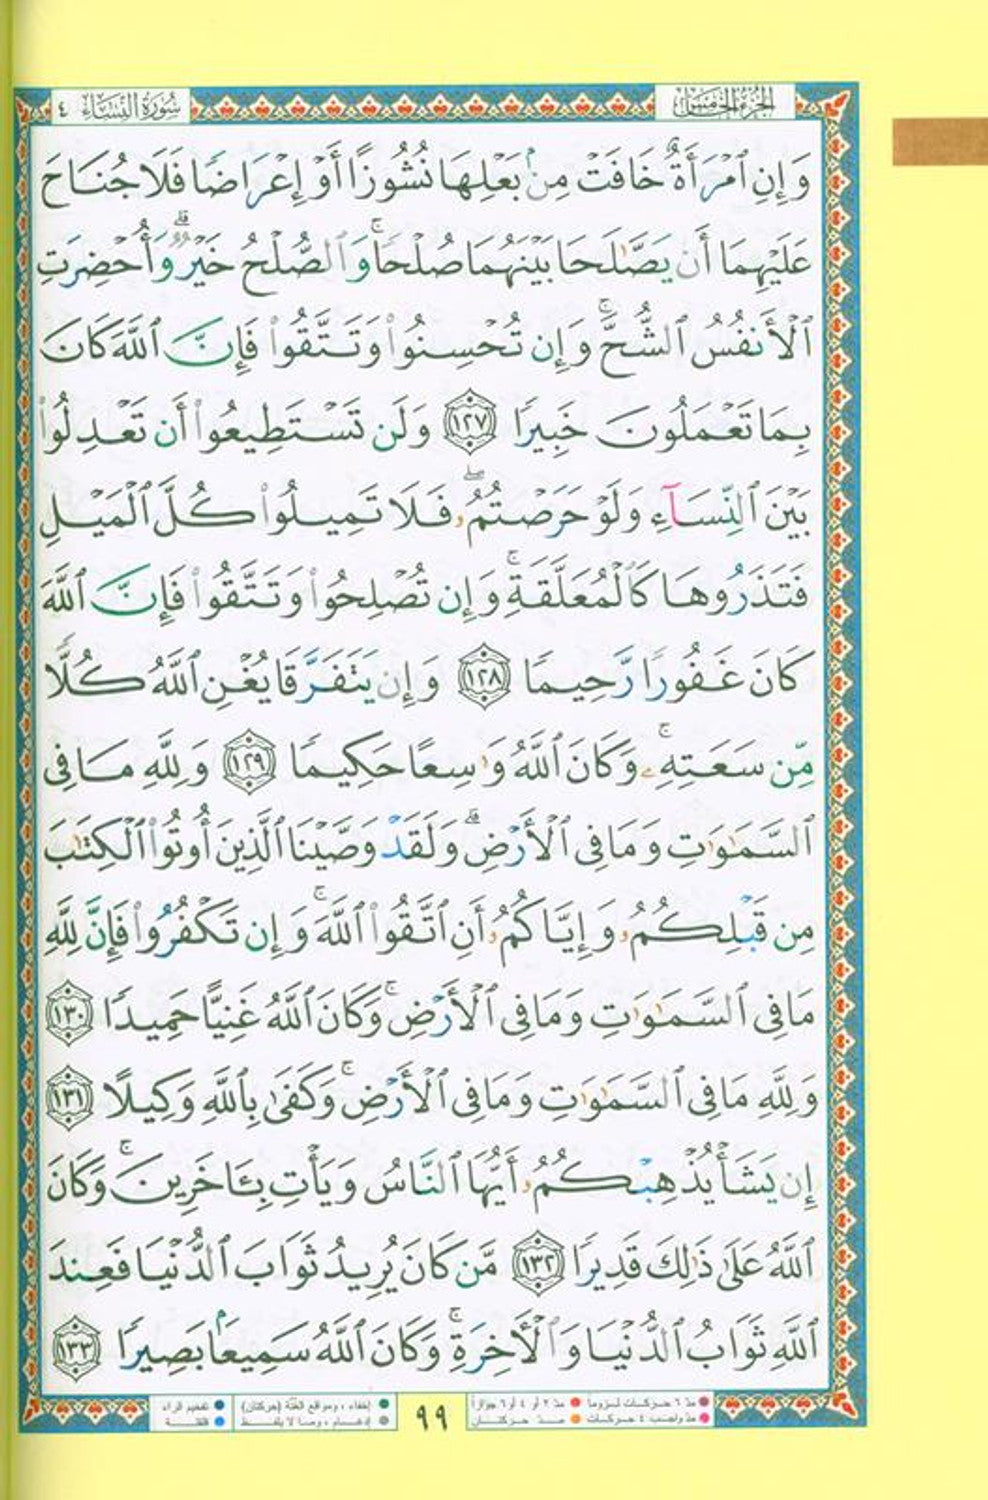 الجزء الخامس
سورة النساء ٤
وَإِنِ ٱمۡرَأَةٌ خَافَتۡ مِنۢ بَعۡلِهَا نُشُوزًا أَوۡ إِعۡرَاضٗا فَلَا جُنَاحَ
عَلَيۡهِمَا أَن يَصَّٰلَحَا بَيۡنَهُمَا صُلۡحٗاۚ وَٱلصُّلۡحُ خَيۡرٞۗ وَأُحۡضِرَتِ
ٱلۡأَنفُسُ ٱلشُّحَّۚ وَإِن تُحۡسِنُواْ وَتَتَّقُواْ فَإِنَّ ٱللَّهَ كَانَ
بِمَا تَعۡمَلُونَ خَبِيرٗا ١٢٧ وَلَن تَسۡتَطِيعُواْ أَن تَعۡدِلُواْ
بَيۡنَ ٱلنِّسَآءِ وَلَوۡ حَرَصۡتُمُۥۖ فَلَا تَمِيلُواْ كُلَّ ٱلۡمَيۡلِ
فَتَذَرُوهَا كَٱلۡمُعَلَّقَةِۚ وَإِن تُصۡلِحُواْ وَتَتَّقُواْ فَإِنَّ ٱللَّهَ
كَانَ غَفُورٗا رَّحِيمٗا ١٢٨ وَإِن يَتَفَرَّقَا يُغۡنِ ٱللَّهُ كُلّٗا
مِّن سَعَتِهِۦۚ وَكَانَ ٱللَّهُ وَٰسِعًا حَكِيمٗا ١٢٩ وَلِلَّهِ مَا فِي
ٱلسَّمَٰوَٰتِ وَمَا فِي ٱلۡأَرۡضِۗ وَلَقَدۡ وَصَّيۡنَا ٱلَّذِينَ أُوتُواْ ٱلۡكِتَٰبَ
مِن قَبۡلِكُمُۥ وَإِيَّاكُمُۥ أَنِ ٱتَّقُواْ ٱللَّهَۚ وَإِن تَكۡفُرُواْ فَإِنَّ لِلَّهِ
مَا فِي ٱلسَّمَٰوَٰتِ وَمَا فِي ٱلۡأَرۡضِۚ وَكَانَ ٱللَّهُ غَنِيًّا حَمِيدٗا ١٣٠
وَلِلَّهِ مَا فِي ٱلسَّمَٰوَٰتِ وَمَا فِي ٱلۡأَرۡضِۚ وَكَفَىٰ بِٱللَّهِ وَكِيلًا ١٣١
إِن يَشَأۡ يُذۡهِبۡكُمُۥ أَيُّهَا ٱلنَّاسُ وَيَأۡتِ بِـَٔاخَرِينَۚ وَكَانَ
ٱللَّهُ عَلَىٰ ذَٰلِكَ قَدِيرٗا ١٣٢ مَّن كَانَ يُرِيدُ ثَوَابَ ٱلدُّنۡيَا فَعِندَ
ٱللَّهِ ثَوَابُ ٱلدُّنۡيَا وَٱلۡأٓخِرَةِۚ وَكَانَ ٱللَّهُ سَمِيعَۢا بَصِيرٗا ١٣٣
مدّ ٦ حركات لزوماً مدّ ٢ أو ٤ أو ٦ جوازاً
مدّ واجب ٤ حركات مدّ حركتان
٩٩
إخفاء، ومواقع الغُنَّة (حركتان)
إدغام، وما لا يُلفَظ
تفخيم الراء
قلقلة